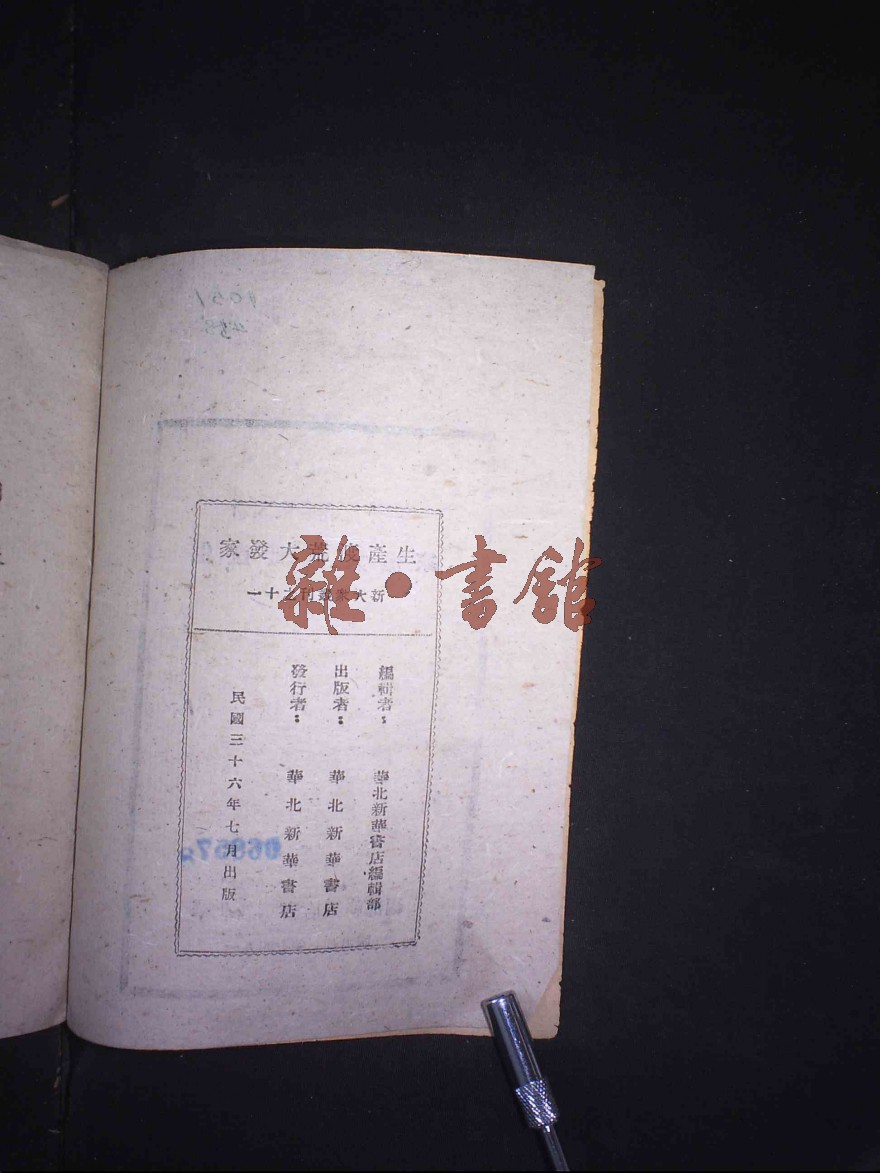 雜·書館
生產度荒大發家
新大衆叢刊之十一
編輯者：華北新華書店編輯部
出版者：華北新華書店
發行者：華北新華書店
民國三十六年七月出版